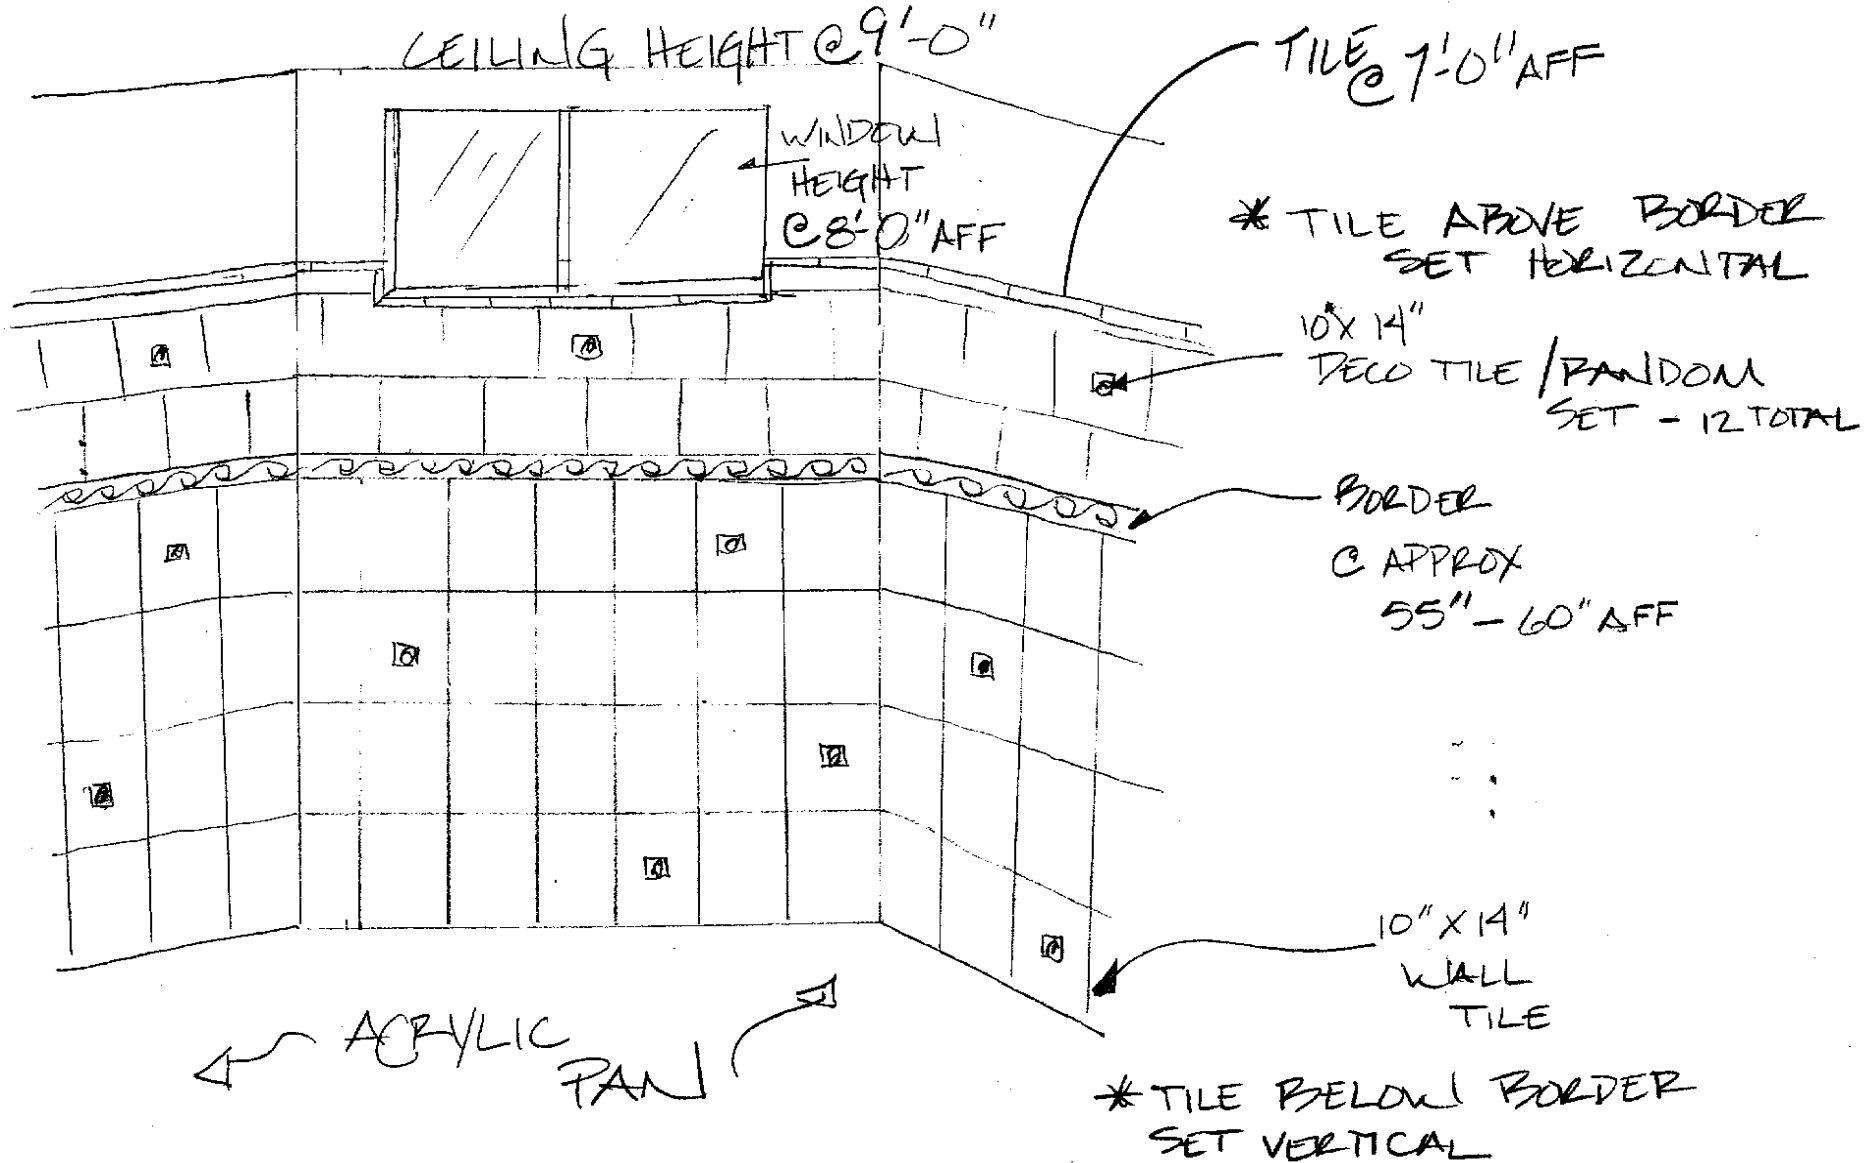 CEILING HEIGHT @ 9'-0"
TILE
@ 7'-0" AFF
WINDOW
HEIGHT
@ 8'-0" AFF
* TILE ABOVE BORDER
SET HORIZONTAL
10" X 14"
DECO TILE / RANDOM
SET - 12 TOTAL
BORDER
@ APPROX
55" - 60" AFF
10" X 14"
WALL
TILE
ACRYLIC
PAN
* TILE BELOW BORDER
SET VERTICAL